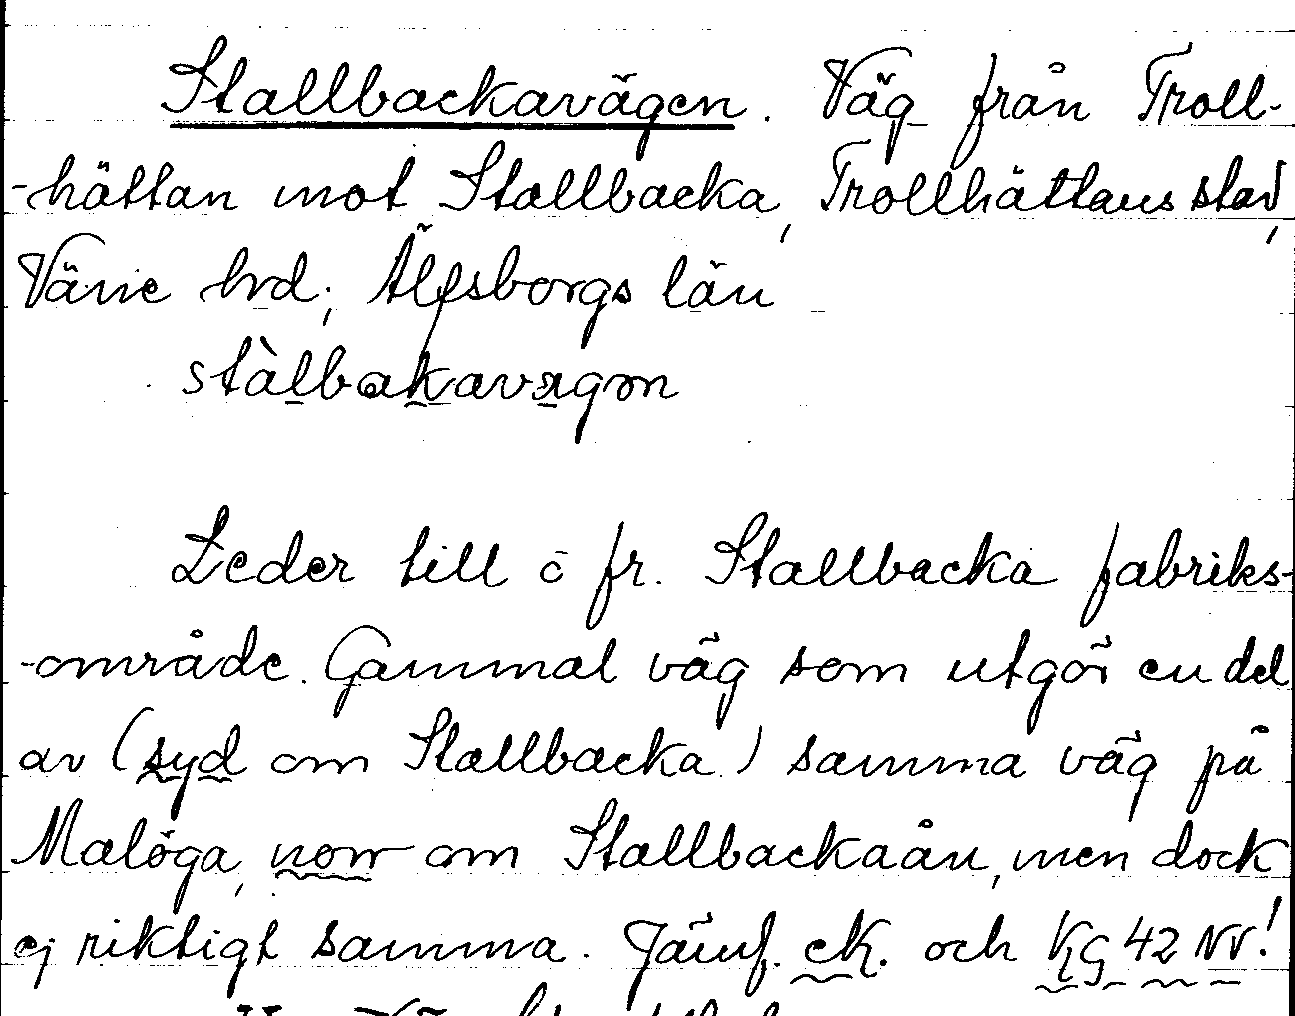 Stallbackavägen. Väg från Troll-
-hättan mot Stallbacka, Trollhättans stad,
Väne hrd, Älfsborgs län
stàlbakavägən
Leder till o fr. Stallbacka fabriks-
-område. Gammal väg som utgör en del
av (syd om Stallbacka) samma väg på
Malöga, norr om Stallbackaån, men dock
ej riktigt samma. Jämf. eK. och KG 42 NV!